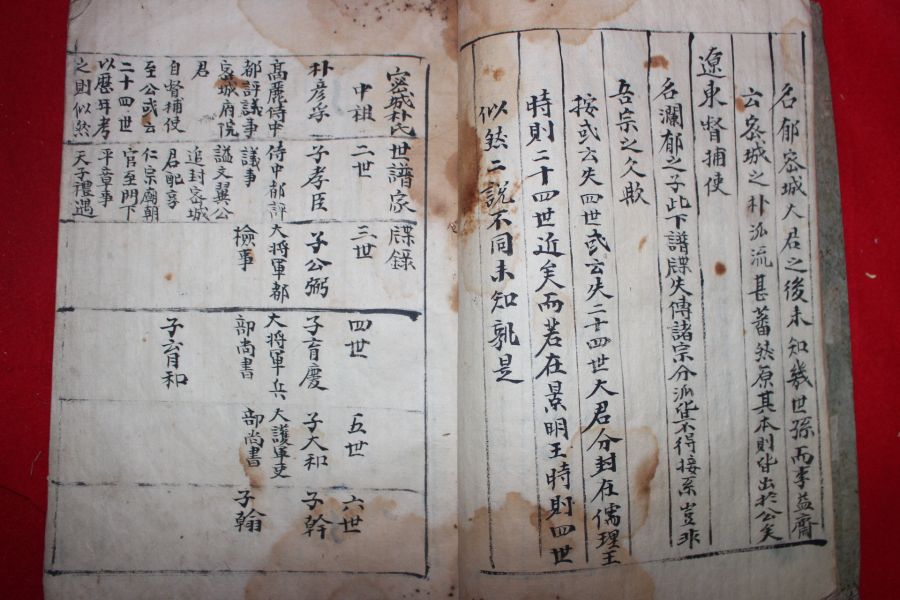 名郁密城大君之後未知幾世孫而李益齋
云密城之朴派流甚蕃然原其本則皆出於公矣
遼東督捕使
名瀾郁之子此下譜牒失傳諸宗分派皆不得接系豈非
吾宗之欠歟
按或云失四世或云失二十四世大君分封在儒理王
時則二十四世近矣而若在景明王時則四世
似然二說不同未知孰是
密城朴氏世譜家牒錄
中祖
朴彦孚
高麗侍中
都評議事
密城府院
君
自督捕使
至公或云
二十四世
以歷年考
之則似然
二世
子孝臣
侍中都評
議事
諡文翼公
追封密城
君配享
仁宗廟朝
官至門下
平章事
天子禮遇
三世
子公弼
大將軍都
檢事
四世
子育慶
大將軍兵
部尚書
子育和
五世
子大和
大護軍吏
部尚書
六世
子幹
子翰